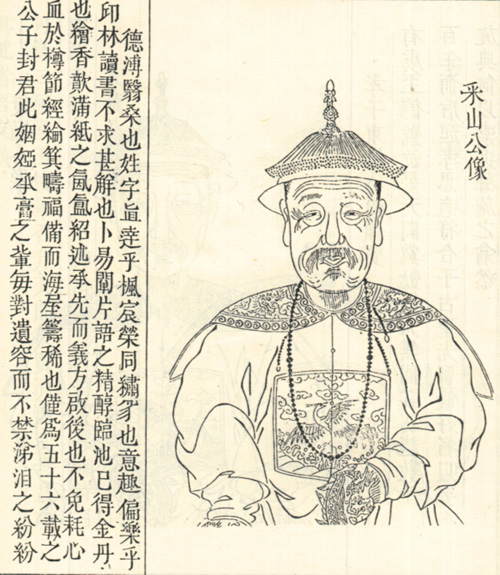 采山公像
德溥翳桑也姓字直達乎楓宸榮同繡豸也意趣偏樂乎
邱林讀書不求甚解也卜易闡片語之精醇臨池已得金丹
也繪香歕滿紙之氤氳紹述承先而義方啟後也不免耗心
血於樽節經綸箕疇福備而海屋籌稀也僅爲五十六載之
公子封君此姻婭承膏之輩每對遺容而不禁涕泪之紛紛